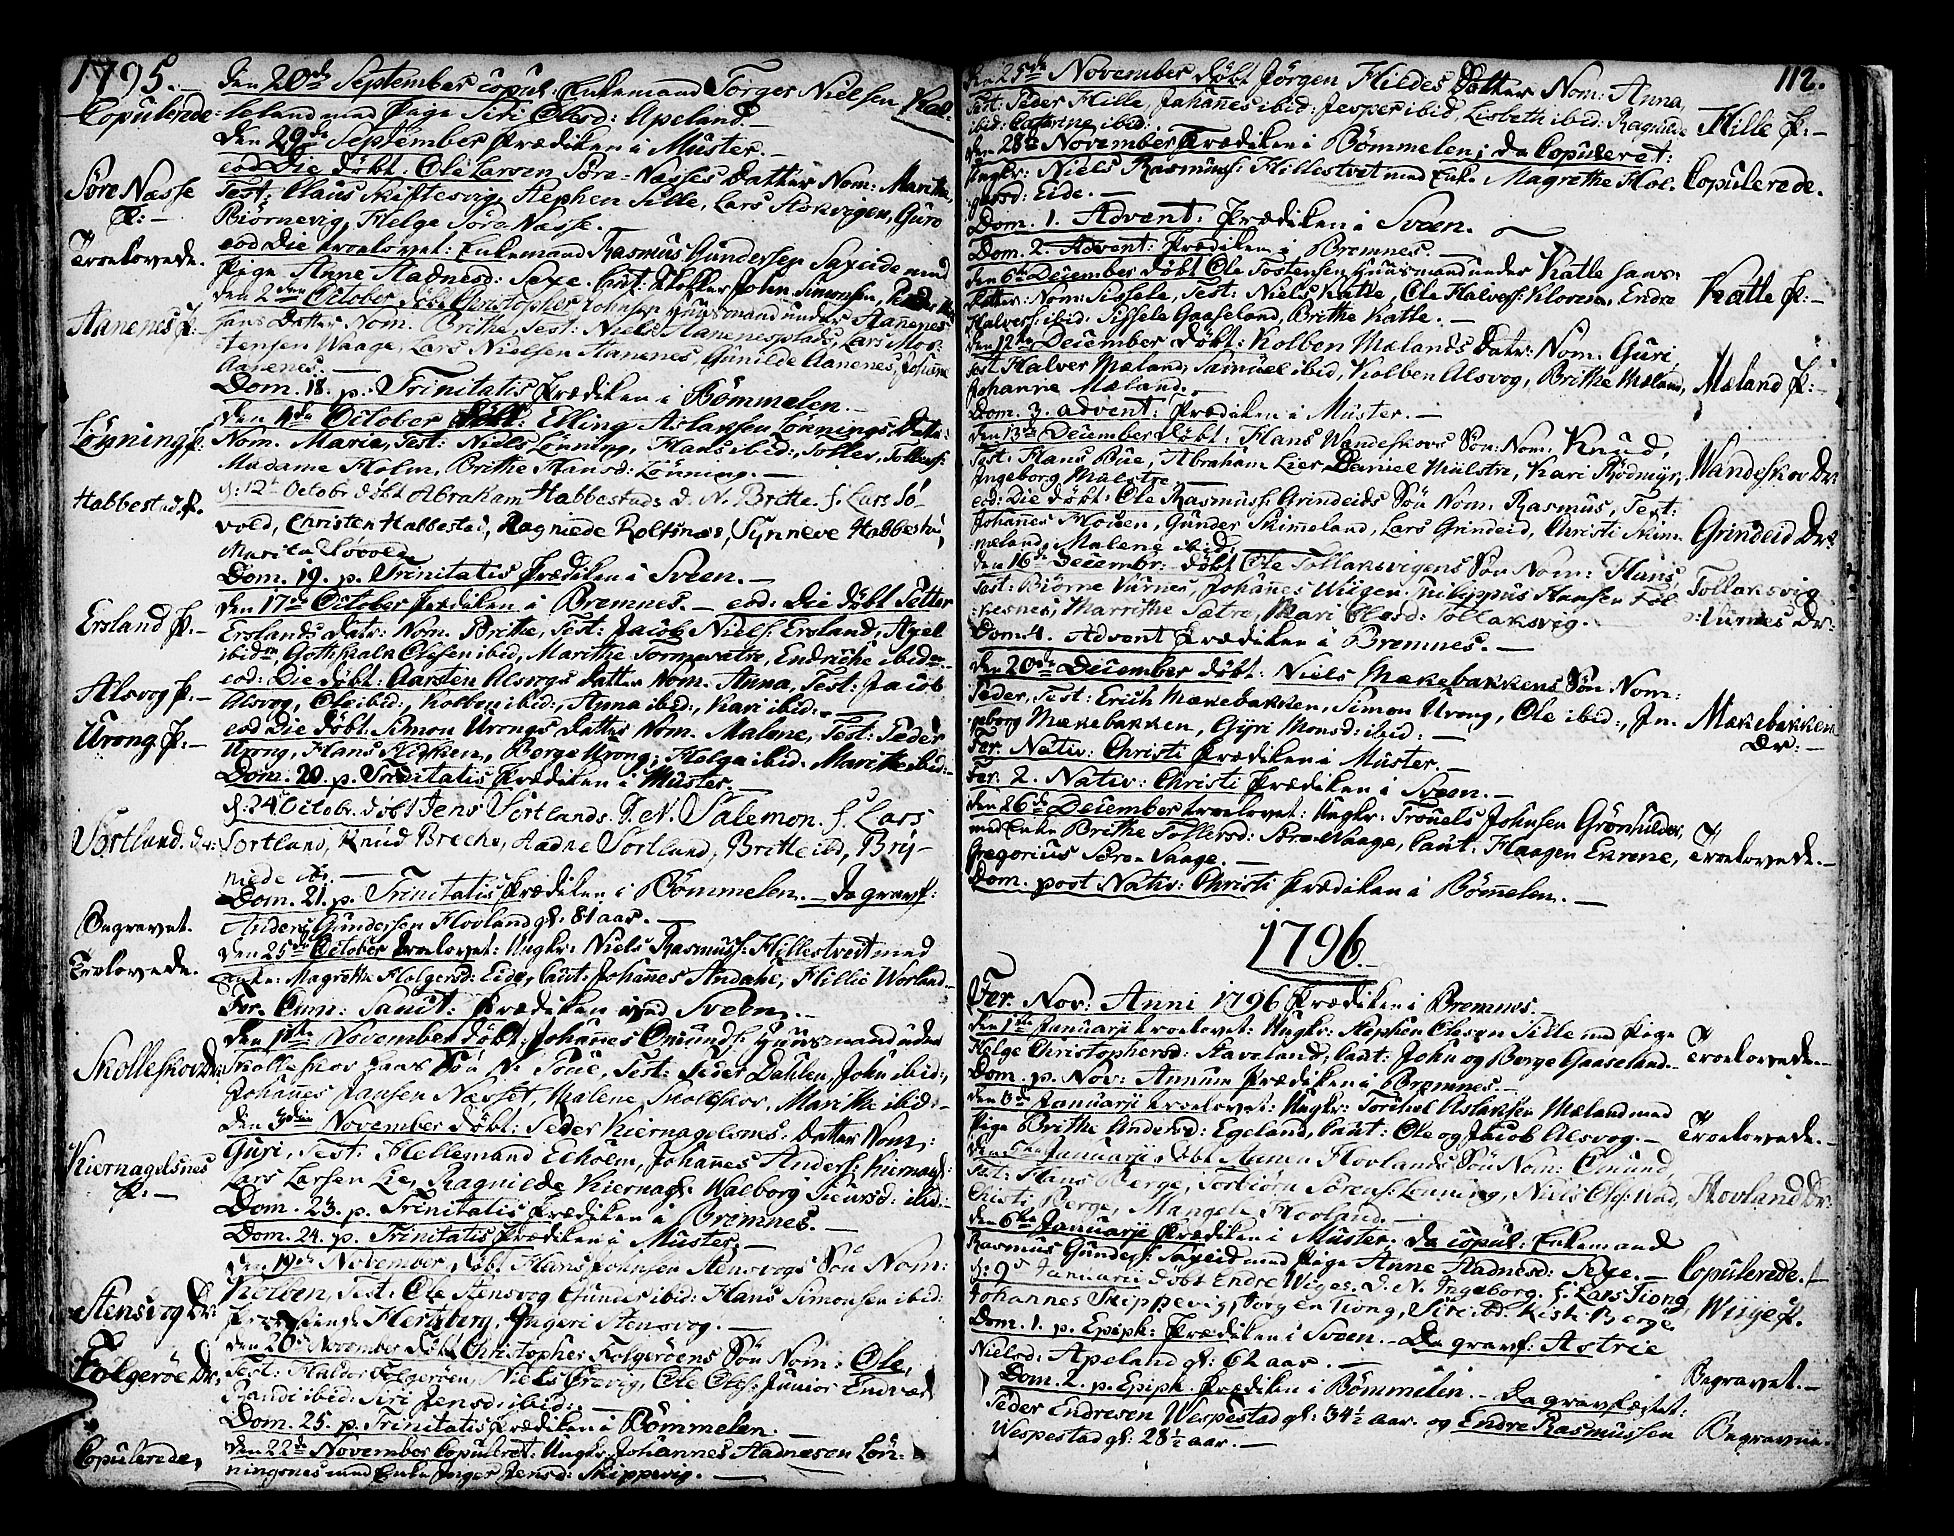 1795.
Den 20de September copul: Enkemand Torger Nielsen Kal-
Copulerede
seland med Pige Siri Olesd: Apeland
Den 29de September Prædiken i Muster.
Søre Nasse P:
eod Die døbt: Ole Larsen Søre-Nasses Datter Nom: Marithe,
Test: Claus Skiftesvig, Stephen Sille, Lars Stokvigen, Guro
Biørnevig, Helge Søre Nasse.
Troelovede.
eod Die troelovet: Enkemand Rasmus Gundersen Saxeide med
Pige Anne Aadnesd: Saxe. Caut: Skolleh John Simonsen,
Aanenes P:
den 2den October døbt Christopher Johnsen Huusmand under Aanenes
hans Datter Nom. Brithe, Test: Niels Aanenesplads, Lars Mor-
tensen Waage, Lars Nielsen Aanenes, Gunilde Aanenes,
Aanenes.
Dom. 18. p. Trinitatis Prædiken i Bømmelen.
Lønning P:
den October døbt: Elling Aslaksen Lønnings Datter
Nom. Maria, Test: Niels Lønning, Hans ibid:, Tollev Tollevs:
Madame Holm, Brithe Hansd: Lønning.
Habbestad P.
d: 12t Octobr døbt Abraham Habbestads d. N. Brithe. f. Lars Lø-
vold, Christen Habbestad, Ragniede Roltsnæs, Synneve Habbestad,
Marita Løvold
Dom. 19. p. Trinitatis Prædiken i Sveen.
Ersland P:
den 17de October Prædiken i Bremnes. eod: Die døbt Petter
Erslands Datr: Nom. Brithe, Test: Jacob Niels: Ersland, Axel
ibidm, Gothskalk Olesen ibid, Marithe Sormesætre, Endriche ibidm
Alsvog P:
eod: Die døbt: Carsten Alsvogs Datter Nom. Anna, Test: Jacob
Alsvog, Ole ibid:, Kolben ibid:, Anna ibid:, Kari ibid:
Urong P:
eod Die døbt: Simon Urongs Datter Nom. Malene, Test: Peder
Urong, Hans Nedken, Børge Urong, Helga ibid. Marithe ibid:
Dom. 20. p. Trinitatis Prædiken i Muster.
Sortland. dr:
d: 24 Octobr. døbt Jens Sortlands D. N. Salemon. f. Lars
Sortland, Knud Breche, Aadne Sortland, Britte ibd, Bry-
niede ibd.
Dom. 21. p. Trinitatis Prædiken i Bømmelen. Da gravf:
Begravet.
Anders Gundersen Hovland gl: 81 aar.
Troelovede.
den 25de October troelovet: Ungkr: Niels Rasmuss: Hillestvedt med
Enke: Magrethe Holgersd: Eide, Caut: Johannes Andahl, Hillie Worland
Fer. Omn: Sanct: Prædiken ved Sveen.
Skolleskov Dr:
den 1ste November døbt: Johannes Omunds: Huusmand under
Skolleskov hans Søn N: Toue, Test: Peder Dahlen, John ibid:,
Johannes Hansen Næsset, Malene Skolleskov, Marithe ibid:
Kiernagelsnes P:
den 3die November døbt: Peder Kiernagelsnes: Datter Nom:
Guri, Test: Hellemand Eeholm, Johannes Anders: Kiernagls:
Lars Larsen Lie, Ragnilde Kiernagls: Walborg Siursd: ibid:
Dom. 23. p. Trinitatis Prædiken i Bremnes.
Dom. 24. p. Trinitatis Prædiken i Muster.
Stensvog Dr
den 19de November døbt Hans Johnsen Stensvogs Søn Nom:
Kolben, Test: Ole Stensvog Gunder ibid: Hans Simonsen ibid:
Herzberg, Ingeri Stensvog.
Folgerøe Dr,
den 20de November døbt Christopher Folgerøens Søn Nom: Ole,
Test: Haldor Folgerøen, Niels Grøvig, Ole Oles: Junior
Randi ibid: Siri Jensd: ibid:
Dom. 25. p. Trinitatis Prædiken i Bømmelen.
Copulerede,
den 22de November Copuleret: Ungkr: Johannes Aadnesen Løn-
ningsnes med Enke Inger Jensd: Skippevig.
112.
den 25de November døbt Jørgen Hildes Datter Nom: Anna,
Test: Peder Hille, Johannes ibid: Jesper ibid, Lisbeth ibid: Ragnilde
ibid: Catarine ibid:
Hille P:
den 28de November Prædiken i Bømmelen; da Copuleret:
Ungkr: Niels Rasmuss: Hillestvet med Enke Magrethe Hol-
gersd: Eide.
Copulerede.
Dom. 1. Advent: Prædiken i Sveen.
Dom. 2. Advent: Prædiken i Bremnes.
den 6te December døbt Ole Tostensen Huusmand under Katle hans
Datter: Nom: Sissele, Test: Niels Katle, Ole Halvors: Kloven, Endre
Halvors: ibid: Sissele Gaaseland, Brithe Katle.
Katle P:
den 12te December døbt: Kolben Mælands Datr: Nom. Guri,
Test Halver Mæland, Samuel ibid, Kolben Alsvog, Brithe Mæland,
Johanne Mæland.
Mæland P:
Dom. 3. advent: Prædiken i Muster.
den 13de December døbt: Hans Wandeskovs Søn: Nom: Knud,
Test: Hans Bue, Abraham Lier, Daniel Mulstre, Kari Rødmyr,
Ingeborg Mulstre.
Wandeskov Dr:
eod: Die døbt: Ole Rasmuss: Grindeids Søn Nom. Rasmus, Test:
Johannes Howen, Gunder Skimeland, Lars Grindeid, Christi Skim-
meland, Malene ibid.
Grindeid Dr:
den 16de Decembr: døbt Ole Tollaksvigens Søn Nom: Hans,
Test: Biørne Vurnes, Johannes Wiigen Philippus Hansen Føl-
vesnes, Marrithe Sætre, Mari Olesd: Tollaksvig.
Tollaksvig
Vurnes Dr:
Dom. 4. Advent Prædiken i Bremnes.
den 20de December døbt: Niels Mækebakkens Søn Nom:
Peder, Test: Erich Mækebakken, Simon Urong, Ole ibid:, In-
geborg Mækebakken, Gyri Monsd: ibid:
Mækebakken Dr:
Fer. Nativ: Christi Prædiken i Muster.
Fer. 2. Nativ: Christi Prædiken i Sveen.
den 26de December troelovet: Ungkr: Trouels Johnsen Grønfulder,
med Enke Brithe Tollevsd: Søre-Waage, Caut: Haagen Ekrene,
Gregorius Søre Vaage.
Troelovede.
Dom. post Nativ: Christi Prædiken i Bømelen.
1796.
Fer. Nov: Anni 1796 Prædiken i Bremnes.
den 1ste Januarji troelovet: Ungkr: Stephen Olesen Sille med Pige
Helge Christophersd: Staveland, Caut: John og Børge Gaaseland.
Troelovede.
Dom. p. Nov: Annum Prædiken i Bremnes.
den 3de Januarji troelovet: Ungkr: Torchel Aslaksen Mæland med
Pige Brithe Andersd: Egeland, Caut: Ole og Jacob Alsvog.
Troelovede.
den Januarji døbt Aamu Hovlands Søn Nom: Omund,
Test: Hans Berge, Torbiørn Sørens: Lønning, Niels Oles: Wad,
Christi Berge, Mangele Hovland.
Hovland Dr:
den 6te Januarji Prædiken i Muster. Da copul: Enkemand
Rasmus Gunders: Saxeid med Pige Anne Aadnesd: Sexe.
Copulerede.
d: 9d Januarii døbt Endre Wiges. D. N. Ingeborg. f. Lars Tiong,
Johannes Skippevig, Jorgen Tiong, Siri ibd. Kisti Berge
Wiige P.
Dom. 1. p. Epiph: Prædiken i Sveen. Da gravf: Astrie
Nielsd: Apeland gl: 62 aar.
Begravet.
Dom. 2. p. Epiph. Prædiken i Bømmelen. Da gravfæstet:
Peder Endresen Wespestad gl: 34½ aar. og Endre Rasmussen
Wespestad gl: 28½ aar.
Begravne.